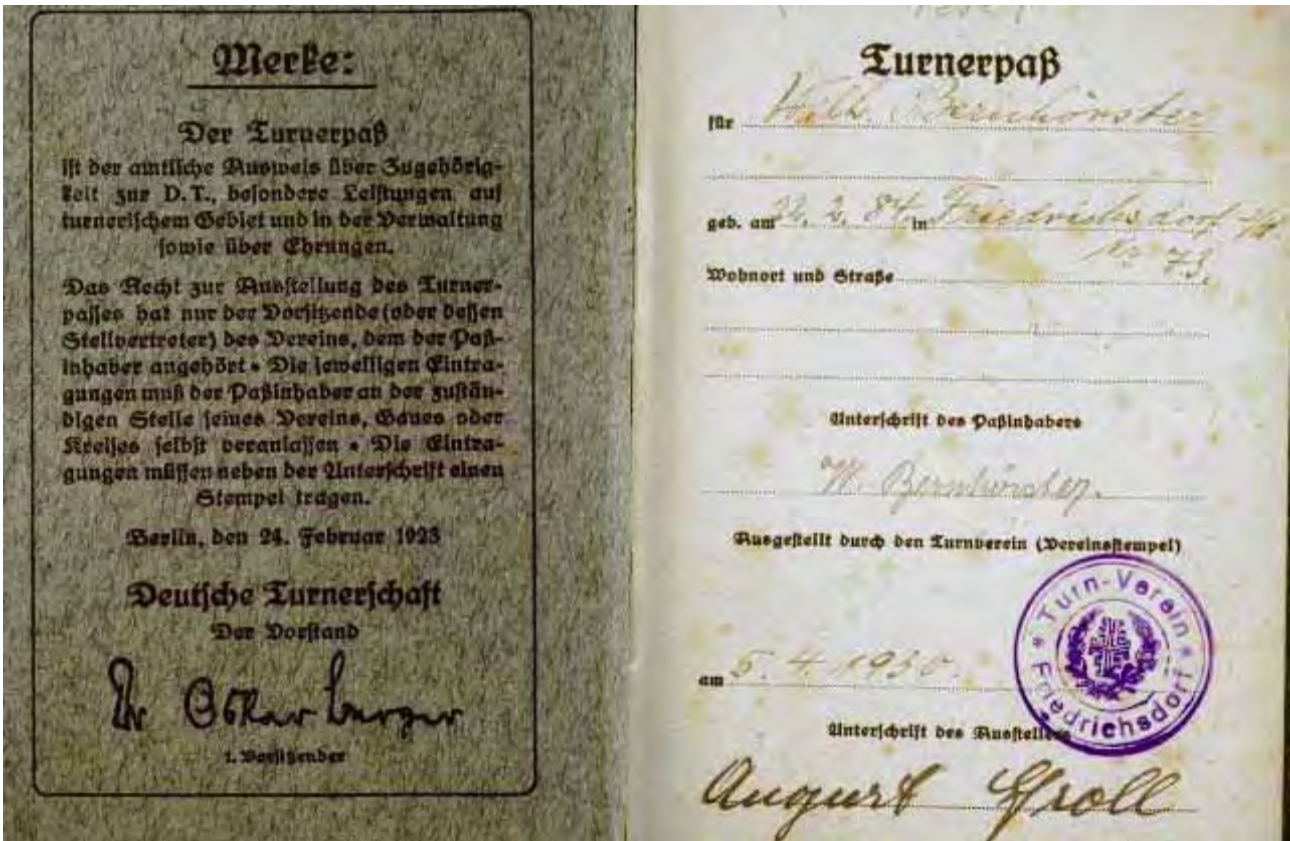 Merke:
Der Turnerpaß
ist der amtliche Ausweis über Zugehörig-
keit zur D.T., besondere Leistungen auf
turnerischem Gebiet und in der Verwaltung
sowie über Ehrungen.
Das Recht zur Ausstellung des Turner-
passes hat nur der Vorsitzende (oder dessen
Stellvertreter) des Vereins, dem der Paß-
inhaber angehört • Die jeweiligen Eintra-
gungen muß der Paßinhaber an der zustän-
digen Stelle seines Vereins, Gaues oder
Kreises selbst veranlassen • Die Eintra-
gungen müssen neben der Unterschrift einen
Stempel tragen.
Berlin, den 24. Februar 1923
Deutsche Turnerschaft
Der Vorstand
Dr Oskar Berger
1. Vorsitzender
Turnerpaß
für Bernhörster
geb. am 2. 84. in Friedrichsdorf
Nr 73.
Wohnort und Straße
Unterschrift des Paßinhabers
W. Bernhörster.
Ausgestellt durch den Turnverein (Vereinsstempel)
Turn-Verein
Friedrichsdorf
am 5. 4. 1930.
Unterschrift des Ausstellers
August Groll